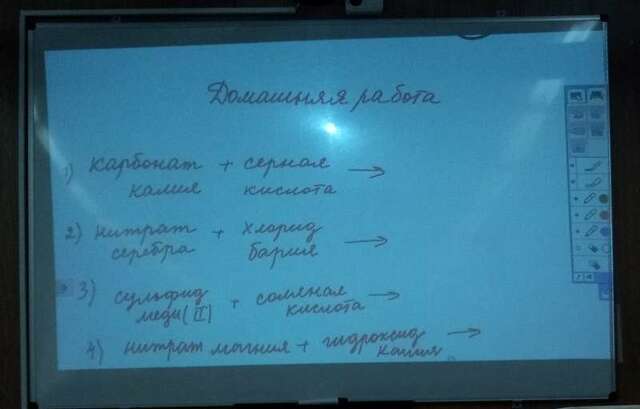 Домашняя работа
1) карбонат + серная →
калия кислота
2) нитрат + хлорид →
серебра бария
3) сульфид + соляная →
меди (II) кислота
4) нитрат магния + гидроксид →
калия